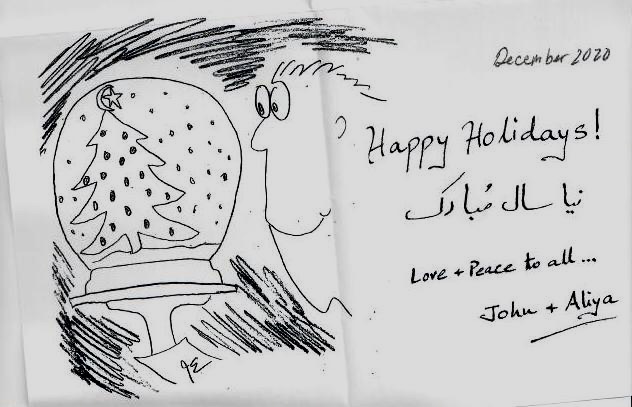 December 2020
Happy Holidays!
نیا سال مُبارک
Love + Peace to all...
John + Aliya
JE